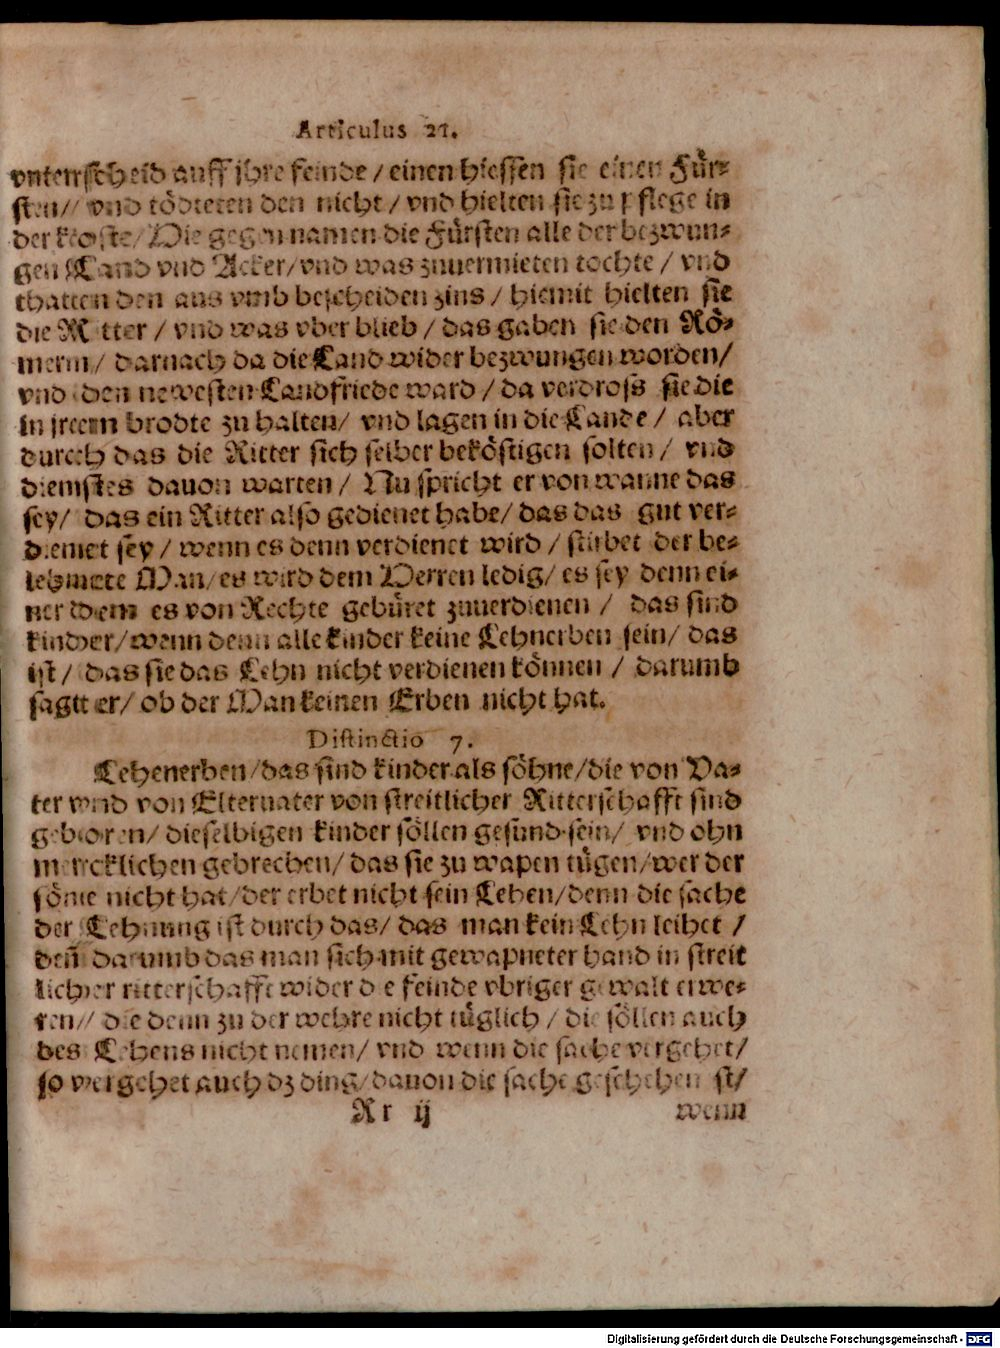 Articulus 21.
vnterrscheid auff jhre feinde / einen hiessen sie einen Für-
sten // vnd tödteten den nicht / vnd hielten sie zu pflege in
der koste / Die gegen namen die Fürsten alle der bezwun-
gen Land vnd Acker / vnd was zuuermieten tochte / vnd
thatten den aus vmb bescheiden zins / hiemit hielten sie
die Ritter / vnd was vber blieb / das gaben sie den Rö-
mern / darnach da die Land wider bezwungen worden /
vnd den newesten Landfriede ward / da verdross sie die
in jreem brodte zu halten / vnd lagen in die Lande / aber
durch das die Ritter sich selber beköstigen solten / vnd
diemstes dauon warten / Nu spricht er von wanne das
sey / das ein Ritter also gedienet habe / das das gut ver-
dienet sey / wenn es denn verdienet wird / stirbet der be-
lehnete Man / es wird dem Herren ledig / es sey denn ei-
ner dem es von Rechte gebüret zuuerdienen / das sind
kinder / wenn denn alle kinder keine Lehnerben sein / das
ist / das sie das Lehn nicht verdienen können / darumb
sagtt er / ob der Man keinen Erben nicht hat.
Distinctio 7.
Lehenerben / das sind kinder als söhne / die von Va-
ter vnd von Elternater von streitlicher Ritterschafft sind
geboren / dieselbigen kinder söllen gesund sein / vnd ohn
mercklichen gebrechen / das sie zu wapen tügen / wer der
söne nicht hat / der erbet nicht sein Lehen / denn die sache
der Lehnung ist durch das / das man kein Lehn leihet /
deñ darumb das man sich mit gewapneter hand in streit
licher ritterschafft wider die feinde vbriger gewalt erwe-
ren // die denn zu der wehre nicht tüglich / die söllen auch
des Lehens nicht nemen / vnd wenn die sache vergehet /
so vergehet auch dz ding / dauon die sache geschehen ist /
Rr ij wenn
Digitalisierung gefördert durch die Deutsche Forschungsgemeinschaft - DFG